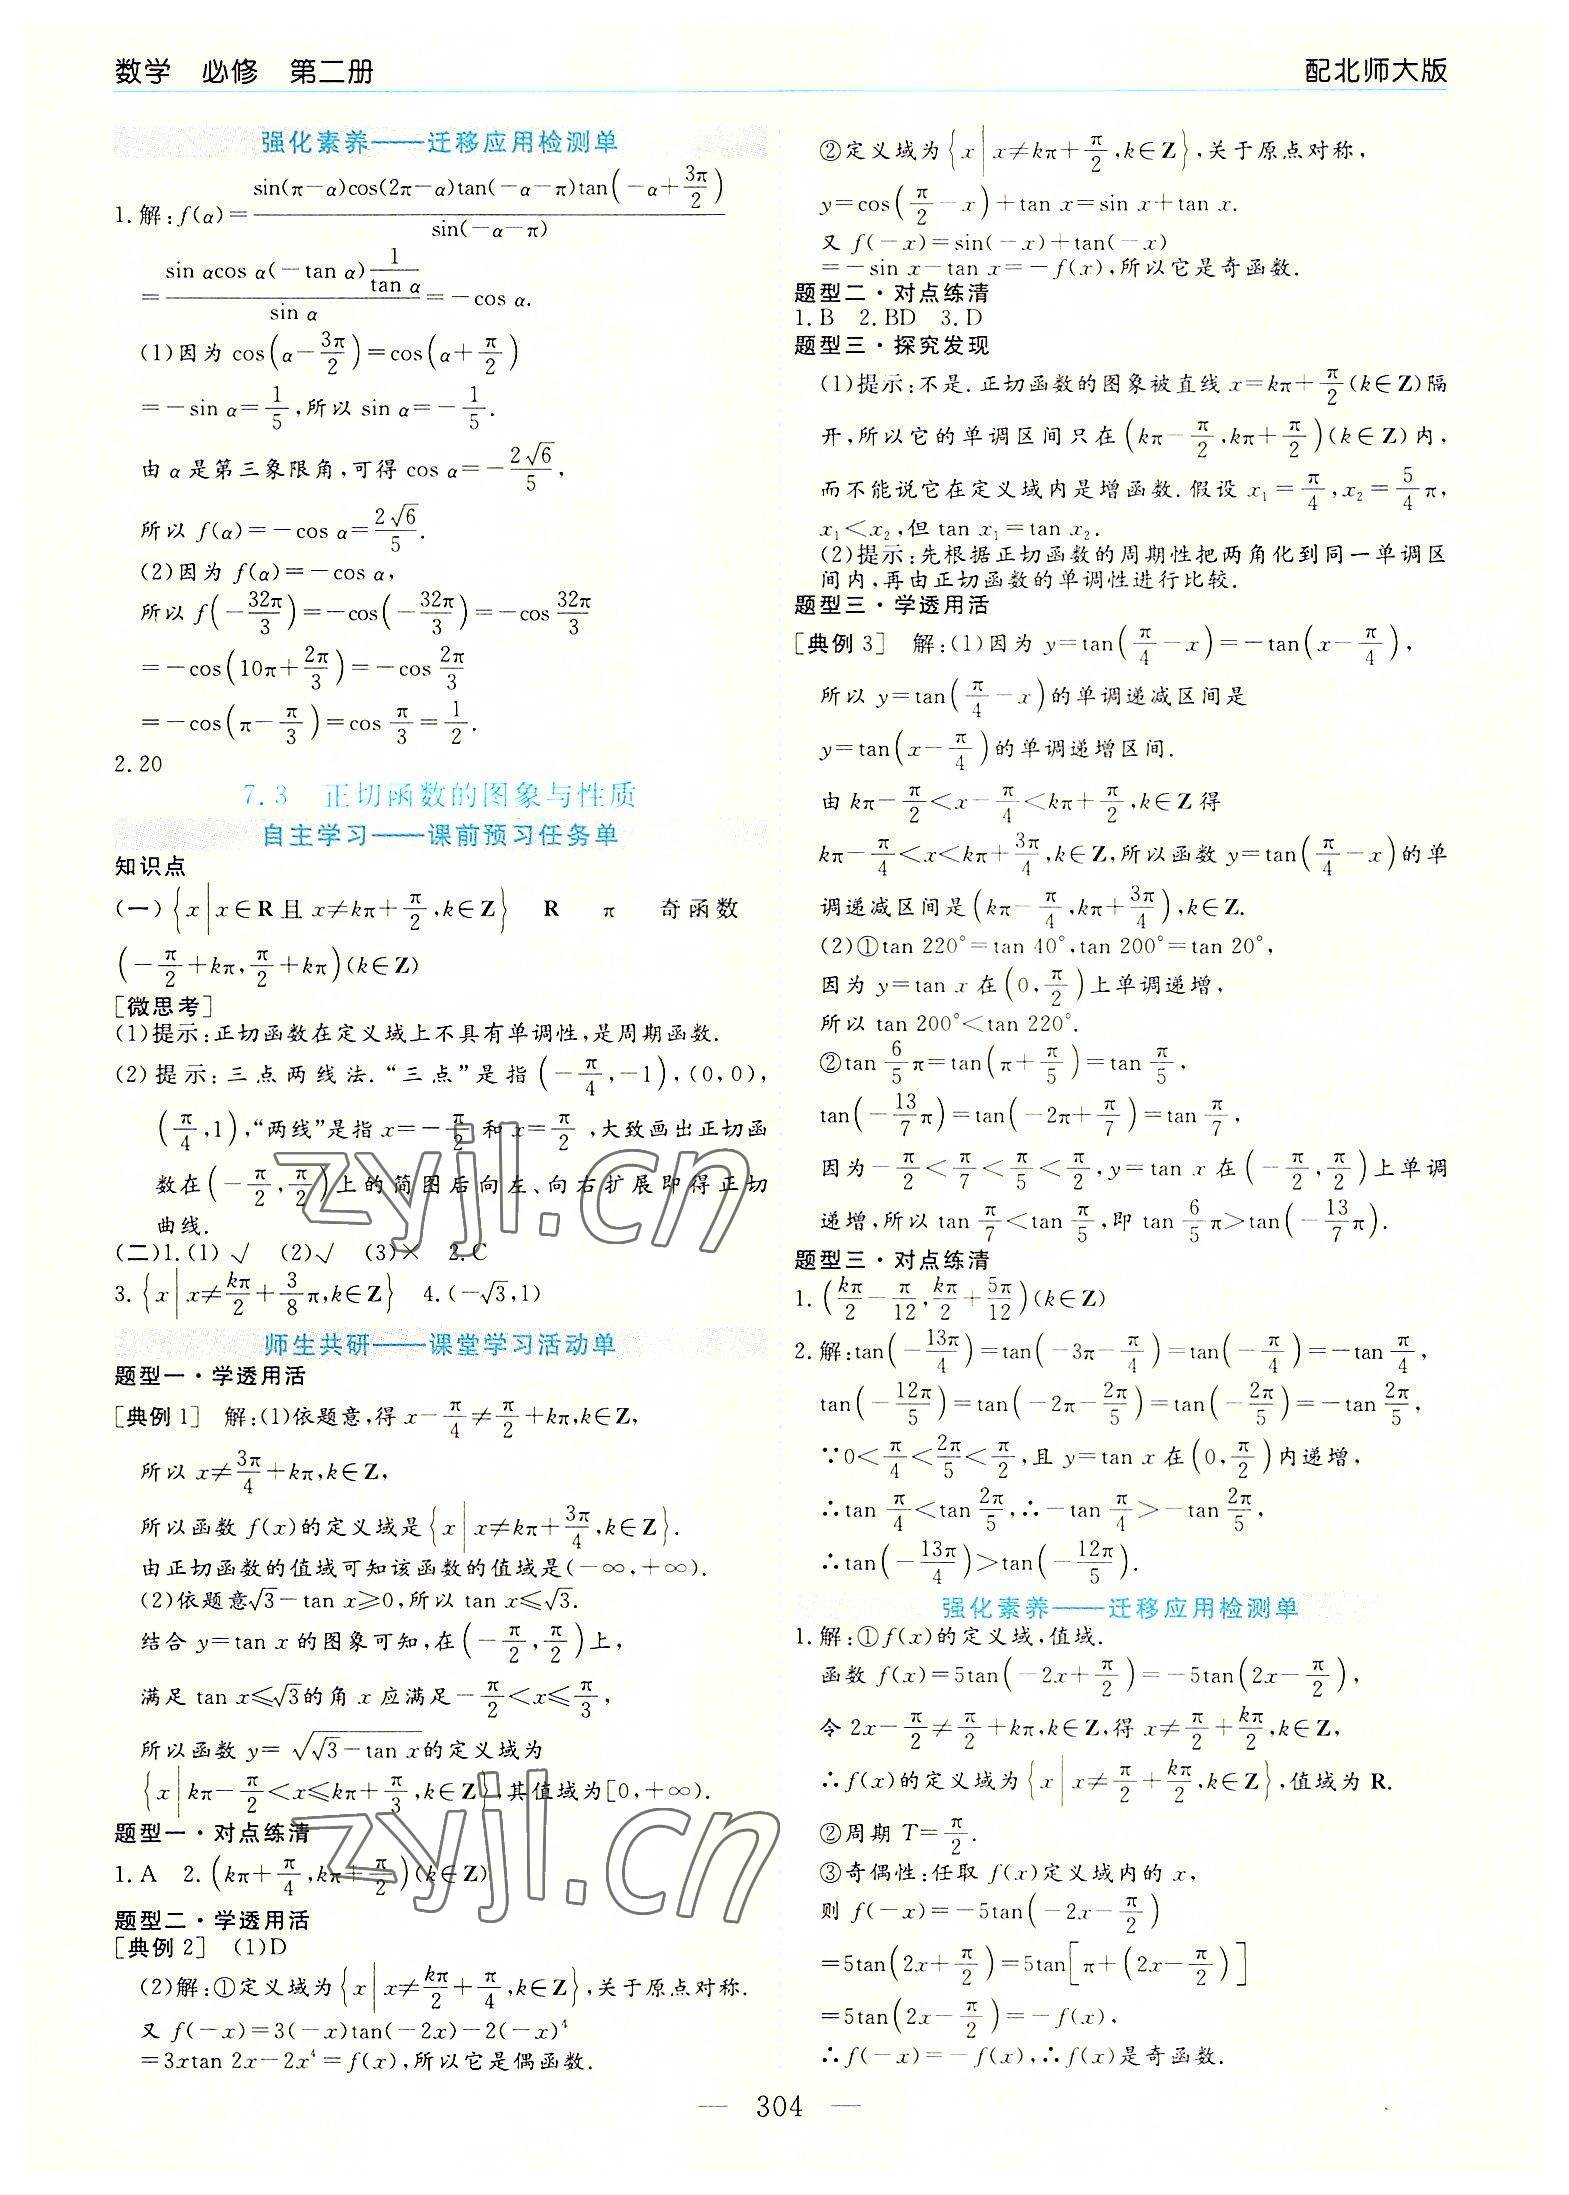 数学 必修 第二册
配北师大版
强化素养——迁移应用检测单
1.解:f(α)=sin(π-α)cos(2π-α)tan(-α-π)tan(-α+3π/2)/sin(-α-π)
=sin αcos α(-tan α)1/tan α/sin α=-cos α.
(1)因为 cos(α-3π/2)=cos(α+π/2)
=-sin α=1/5,所以 sin α=-1/5.
由 α 是第三象限角,可得 cos α=-2√6/5,
所以 f(α)=-cos α=2√6/5.
(2)因为 f(α)=-cos α,
所以 f(-32π/3)=-cos(-32π/3)=-cos 32π/3
=-cos(10π+2π/3)=-cos 2π/3
=-cos(π-π/3)=cos π/3=1/2.
2.20
7.3 正切函数的图象与性质
自主学习——课前预习任务单
知识点
(一){x|x∈R且 x≠kπ+π/2,k∈Z} R π 奇函数
(-π/2+kπ,π/2+kπ)(k∈Z)
[微思考]
(1)提示:正切函数在定义域上不具有单调性,是周期函数.
(2)提示:三点两线法.“三点”是指(-π/4,-1),(0,0),
(π/4,1),“两线”是指 x=-π/2 和 x=π/2,大致画出正切函
数在(-π/2,π/2)上的简图后向左、向右扩展即得正切
曲线.
(二)1.(1)√ (2)√ (3)× 2.C
3.{x|x≠kπ/2+3/8π,k∈Z} 4.(-√3,1)
师生共研——课堂学习活动单
题型一·学透用活
[典例1] 解:(1)依题意,得 x-π/4≠π/2+kπ,k∈Z,
所以 x≠3π/4+kπ,k∈Z,
所以函数 f(x)的定义域是{x|x≠kπ+3π/4,k∈Z}.
由正切函数的值域可知该函数的值域是(-∞,+∞).
(2)依题意√3-tan x≥0,所以 tan x≤√3.
结合 y=tan x 的图象可知,在(-π/2,π/2)上,
满足 tan x≤√3的角 x 应满足-π/2<x≤π/3,
所以函数 y=√(√3-tan x)的定义域为
{x|kπ-π/2<x≤kπ+π/3,k∈Z},其值域为[0,+∞).
题型一·对点练清
1.A 2.(kπ+π/4,kπ+π/2)(k∈Z)
题型二·学透用活
[典例2] (1)D
(2)解:①定义域为{x|x≠kπ/2+π/4,k∈Z},关于原点对称.
又 f(-x)=3(-x)tan(-2x)-2(-x)⁴
=3xtan 2x-2x⁴=f(x),所以它是偶函数.
②定义域为{x|x≠kπ+π/2,k∈Z},关于原点对称,
y=cos(π/2-x)+tan x=sin x+tan x.
又 f(-x)=sin(-x)+tan(-x)
=-sin x-tan x=-f(x),所以它是奇函数.
题型二·对点练清
1.B 2.BD 3.D
题型三·探究发现
(1)提示:不是.正切函数的图象被直线 x=kπ+π/2(k∈Z)隔
开,所以它的单调区间只在(kπ-π/2,kπ+π/2)(k∈Z)内,
而不能说它在定义域内是增函数.假设 x₁=π/4,x₂=5/4π,
x₁<x₂,但 tan x₁=tan x₂.
(2)提示:先根据正切函数的周期性把两角化到同一单调区
间内,再由正切函数的单调性进行比较.
题型三·学透用活
[典例3] 解:(1)因为 y=tan(π/4-x)=-tan(x-π/4),
所以 y=tan(π/4-x)的单调递减区间是
y=tan(x-π/4)的单调递增区间.
由 kπ-π/2<x-π/4<kπ+π/2,k∈Z得
kπ-π/4<x<kπ+3π/4,k∈Z,所以函数 y=tan(π/4-x)的单
调递减区间是(kπ-π/4,kπ+3π/4),k∈Z.
(2)①tan 220°=tan 40°,tan 200°=tan 20°,
因为 y=tan x 在(0,π/2)上单调递增,
所以 tan 200°<tan 220°.
②tan 6/5π=tan(π+π/5)=tan π/5,
tan(-13/7π)=tan(-2π+π/7)=tan π/7,
因为-π/2<π/7<π/5<π/2,y=tan x 在(-π/2,π/2)上单调
递增,所以 tan π/7<tan π/5,即 tan 6/5π>tan(-13/7π).
题型三·对点练清
1.(kπ/2-π/12,kπ/2+5π/12)(k∈Z)
2.解:tan(-13π/4)=tan(-3π-π/4)=tan(-π/4)=-tan π/4,
tan(-12π/5)=tan(-2π-2π/5)=tan(-2π/5)=-tan 2π/5,
∵0<π/4<2π/5<π/2,且 y=tan x 在(0,π/2)内递增,
∴tan π/4<tan 2π/5,∴-tan π/4>-tan 2π/5,
∴tan(-13π/4)>tan(-12π/5).
强化素养——迁移应用检测单
1.解:①f(x)的定义域,值域.
函数 f(x)=5tan(-2x+π/2)=-5tan(2x-π/2),
令 2x-π/2≠π/2+kπ,k∈Z,得 x≠π/2+kπ/2,k∈Z,
∴f(x)的定义域为{x|x≠π/2+kπ/2,k∈Z},值域为 R.
②周期 T=π/2.
③奇偶性:任取 f(x)定义域内的 x,
则 f(-x)=-5tan(-2x-π/2)
=5tan(2x+π/2)=5tan[π+(2x-π/2)]
=5tan(2x-π/2)=-f(x),
∴f(-x)=-f(x),∴f(x)是奇函数.
— 304 —
zyjl.cn
zyjl.cn